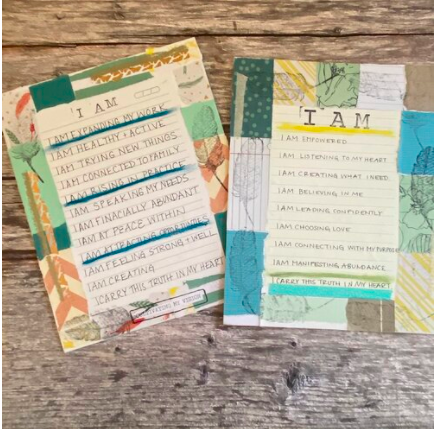 I AM
I AM EXPANDING MY WORK
I AM HEALTHY + ACTIVE
I AM TRYING NEW THINGS
I AM CONNECTED TO FAMILY
I AM IN PRACTICE
I AM SPEAKING MY NEEDS
I AM FINACIALLY ABUNDANT
I AM AT PEACE WITHIN
I AM ATTRACTING
I AM FEELING STRONG + WELL
I AM CREATING
I CARRY THIS TRUTH IN MY HEART
MY WISDOM
I AM
I AM EMPOWERED
I AM LISTENING TO MY HEART
I AM CREATING WHAT I NEED
I AM BELIEVING IN ME
I AM LEADING CONFIDENTLY
I AM CHOOSING LOVE
I AM CONNECTING WITH MY PURPOSE
I AM MANIFESTING ABUNDANCE
I CARRY THIS TRUTH IN MY HEART